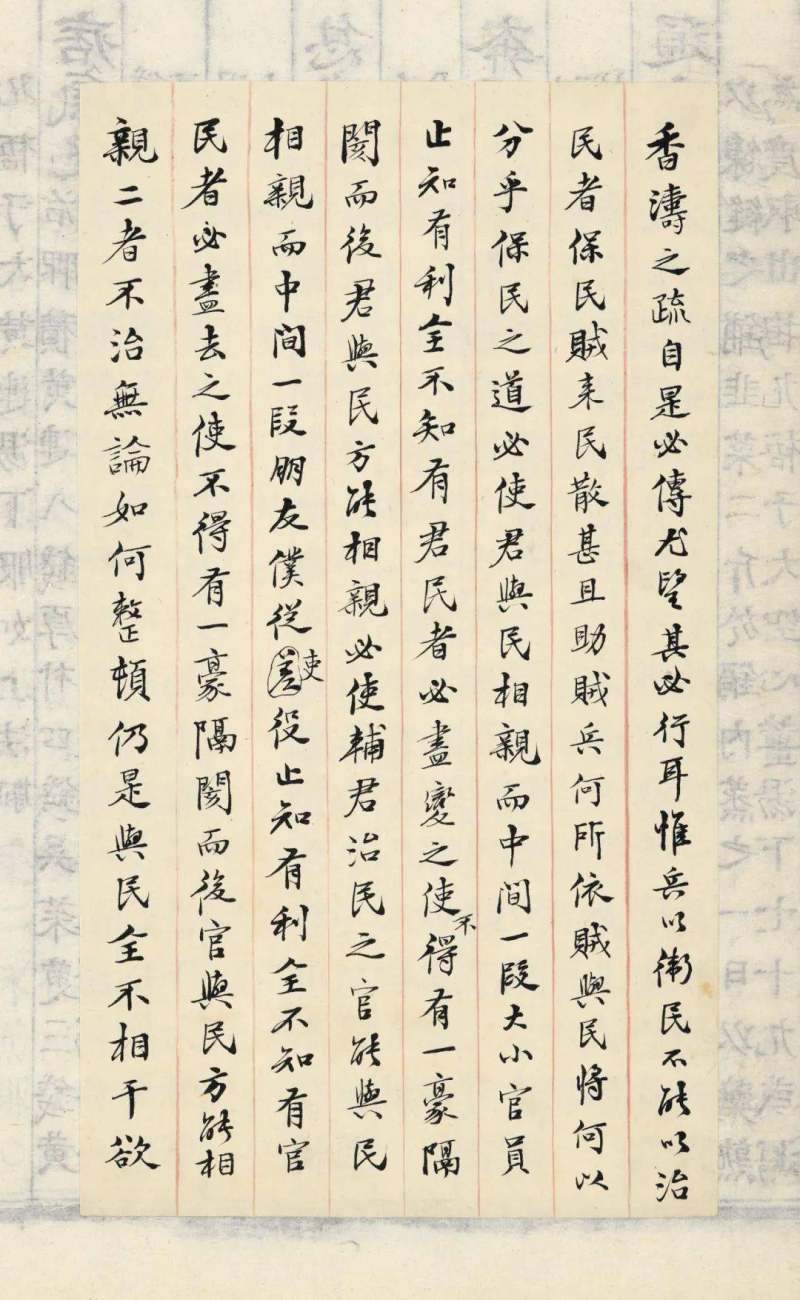 香濤之疏自是必傳尤望其必行耳惟兵以衛民不能以治
民者保民賊来民散甚且助賊兵何所依賊與民將何以
分乎保民之道必使君與民相親而中間一段大小官員
止知有利全不知有君民者必盡變之使不得有一豪隔
閡而後君與民方能相親必使輔君治民之官能與民
相親而中間一段朋友僕從差使役止知有利全不知有官
民者必盡去之使不得有一豪隔閡而後官與民方能相
親二者不治無論如何整頓仍是與民全不相干欲